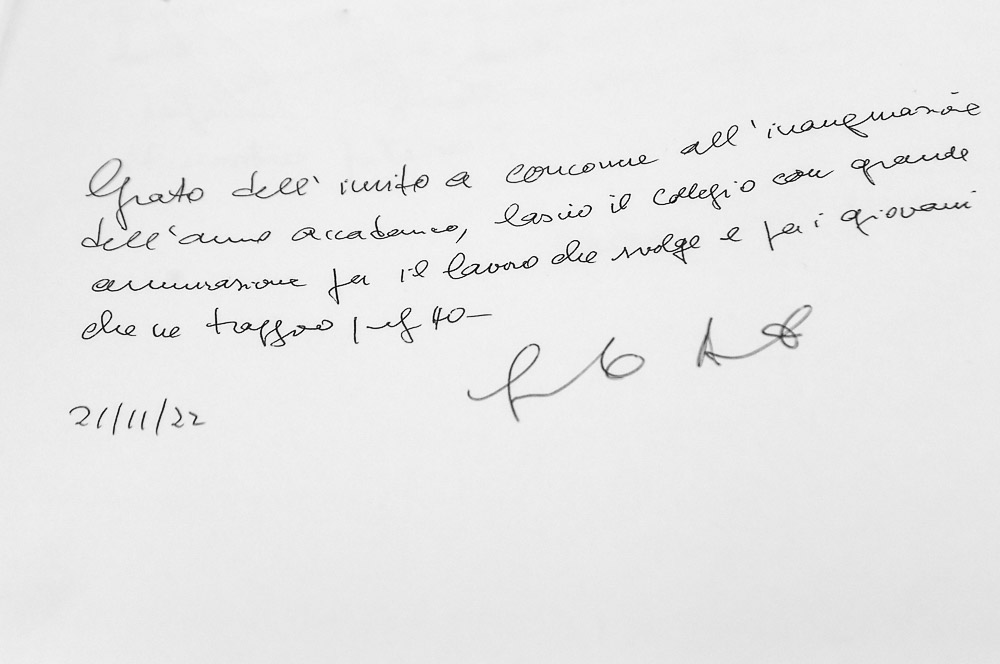 Grato dell'invito a concorrere all'inaugurazione
dell'anno accademico, lascio il collegio con grande
ammirazione per il lavoro che svolge e per i giovani
che ne traggono profitto
21/11/22